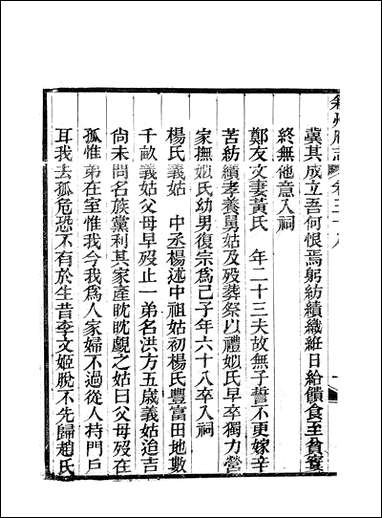 叙州府志 卷三十八
冀其成立吾何恨焉躬紡績織紝日給饋食至貧窶
終無他意入祠
鄭友文妻黃氏 年二十三夫故無子誓不更嫁辛
苦紡績孝養舅姑及歿葬祭以禮姒氏早卒獨力營
家撫姒氏幼男復宗為己子年六十八卒入祠
楊氏義姑 中丞楊述中祖姑初楊氏豐富田地數
千畝義姑父母早歿止一弟名洪方五歲義姑迨吉
尚未問名族黨利其家產眈眈覷之姑曰父母歿在
孤惟弟在室惟我今我為人家婦不過從人持門戶
耳我去孤危恐不有於生昔李文姬脫不先歸趙氏